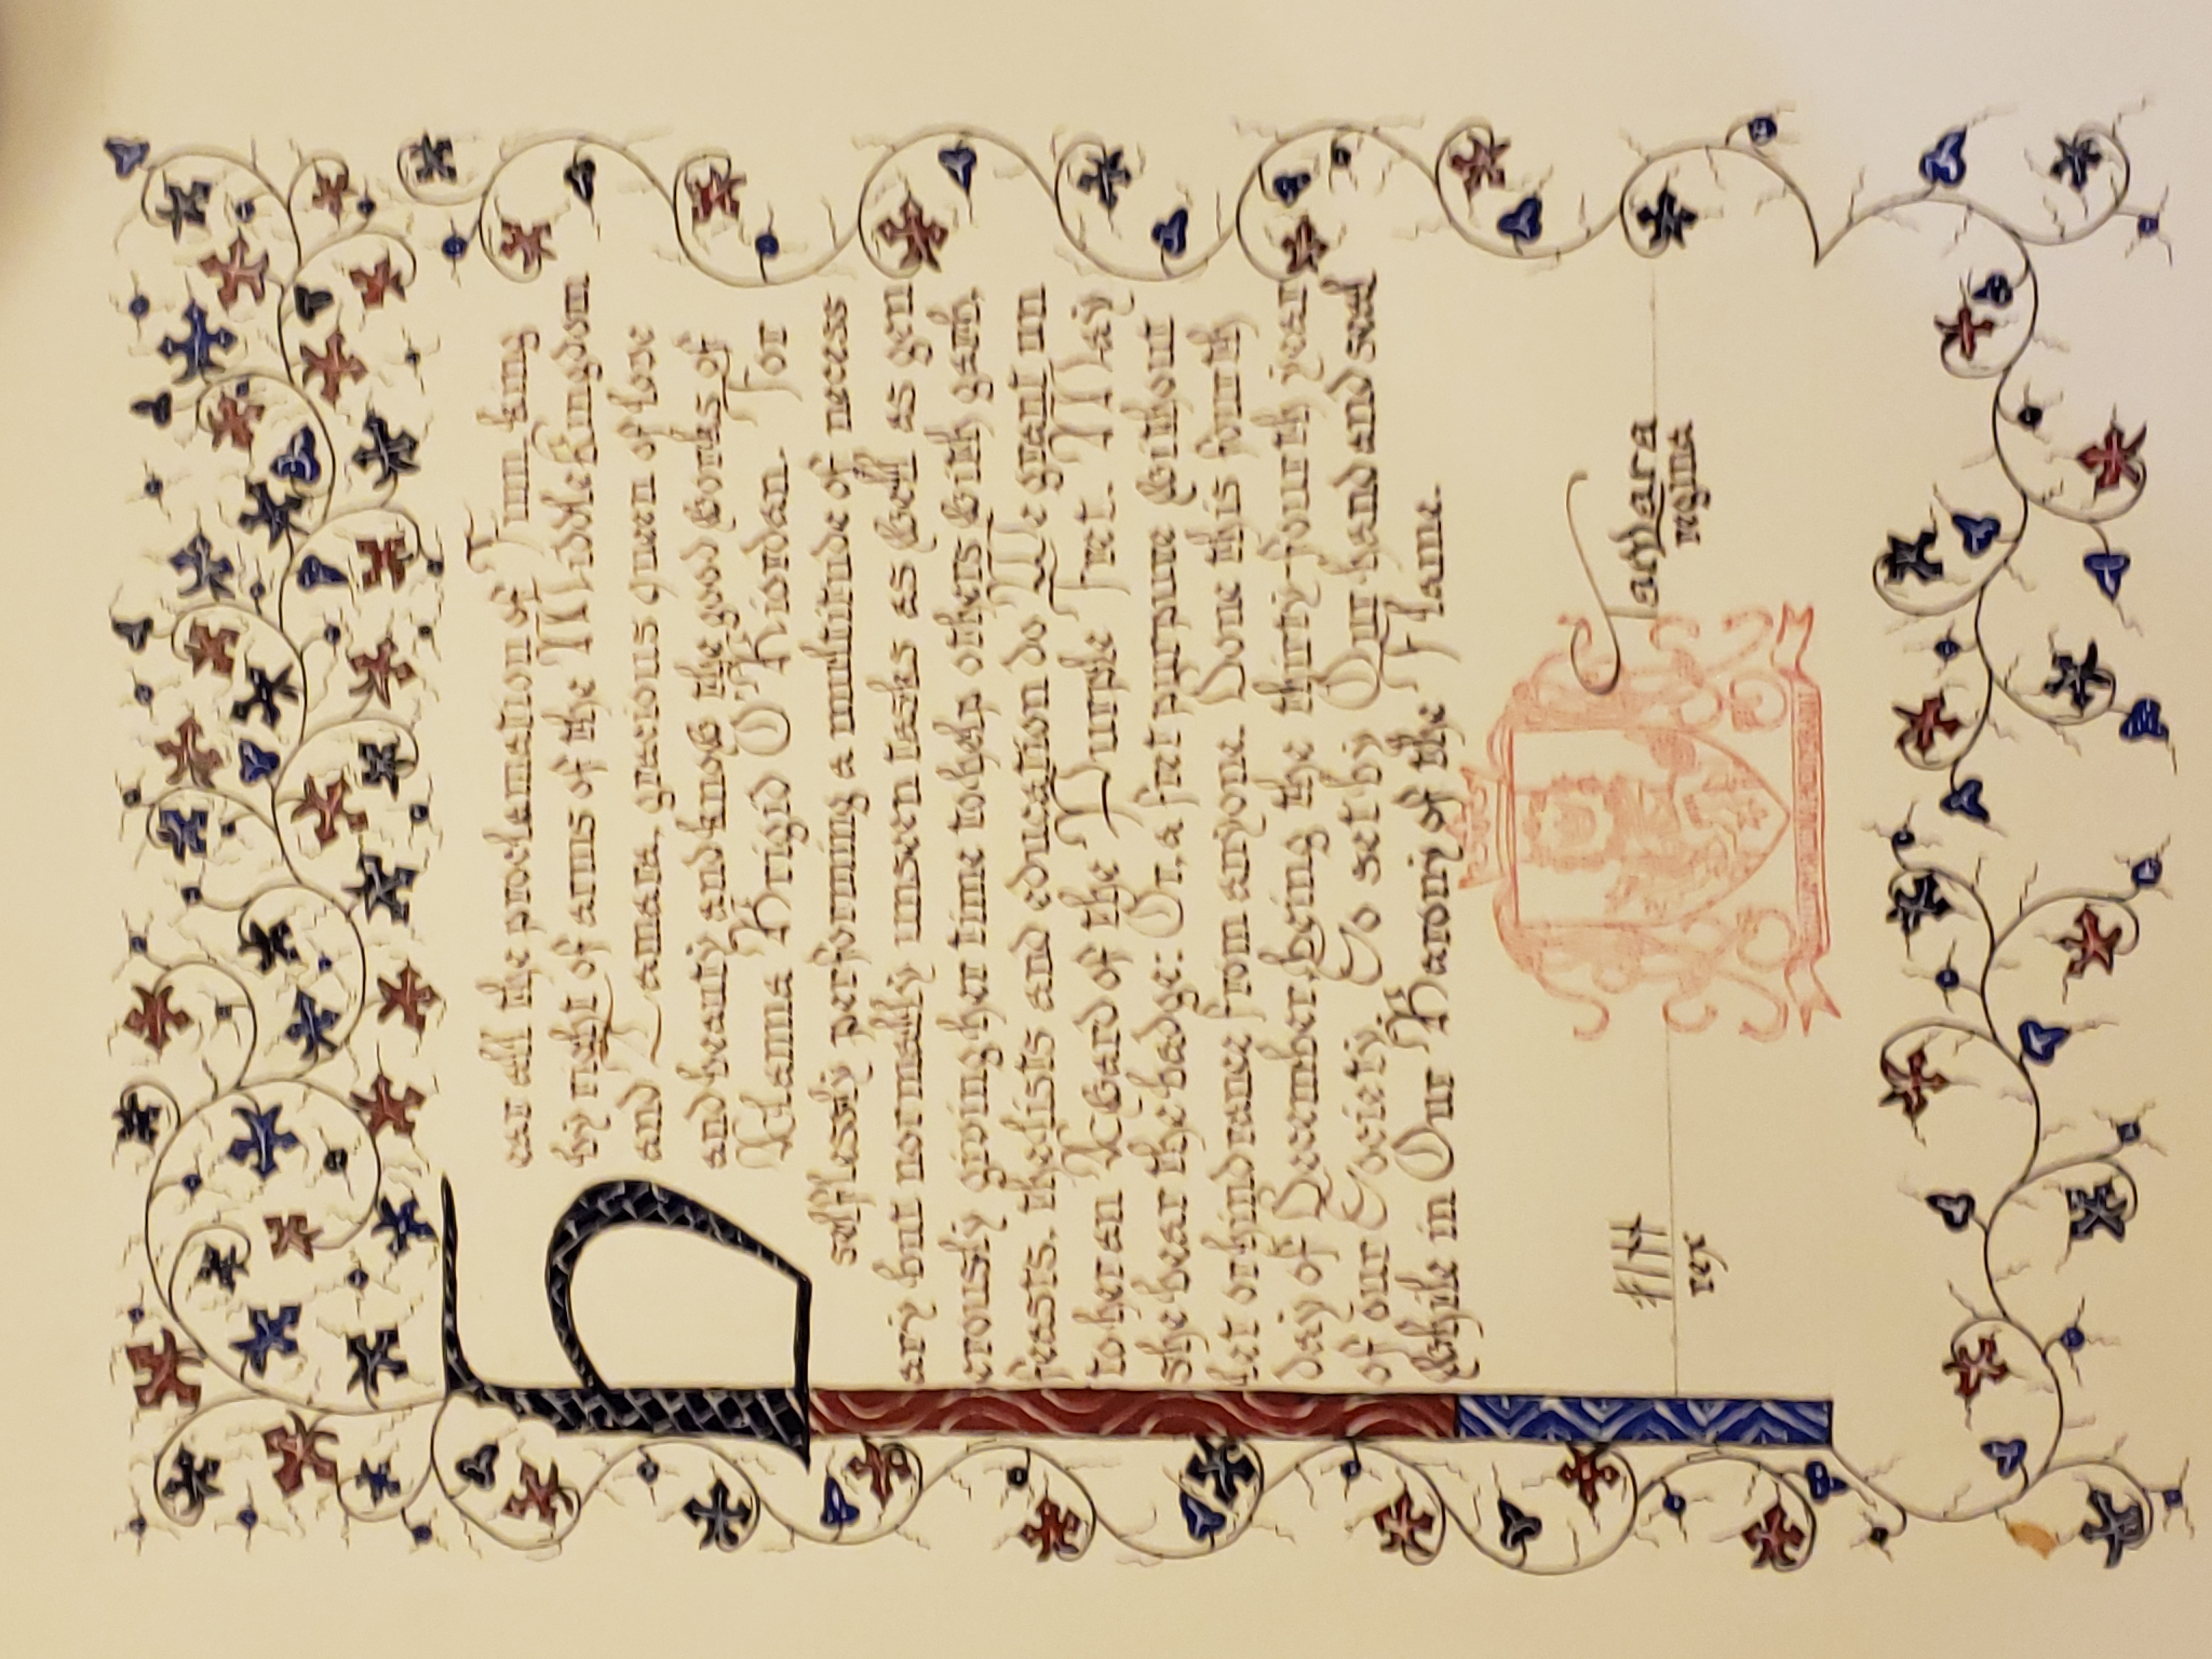 Hear all the proclamation of Finn king
by right of arms of the Middle Kingdom
and Tamara, gracious queen of love
and beauty and know the good works of
Alanna Brigid O'Riordan. For
selflessly performing a multitude of necess
ary but normally unseen tasks as well as gen
erously giving her time to help others with garb,
feasts, the lists and education do We grant un
to her an Award of the Purple Fret. May
she bear the badge: Or, a fret purpure without
let or hindrance from anyone. Done this fourth
day of December, being the thirty-fourth year
of our Society. So set by Our hand and seal
while in Our Barony of the Flame.
rex
regina